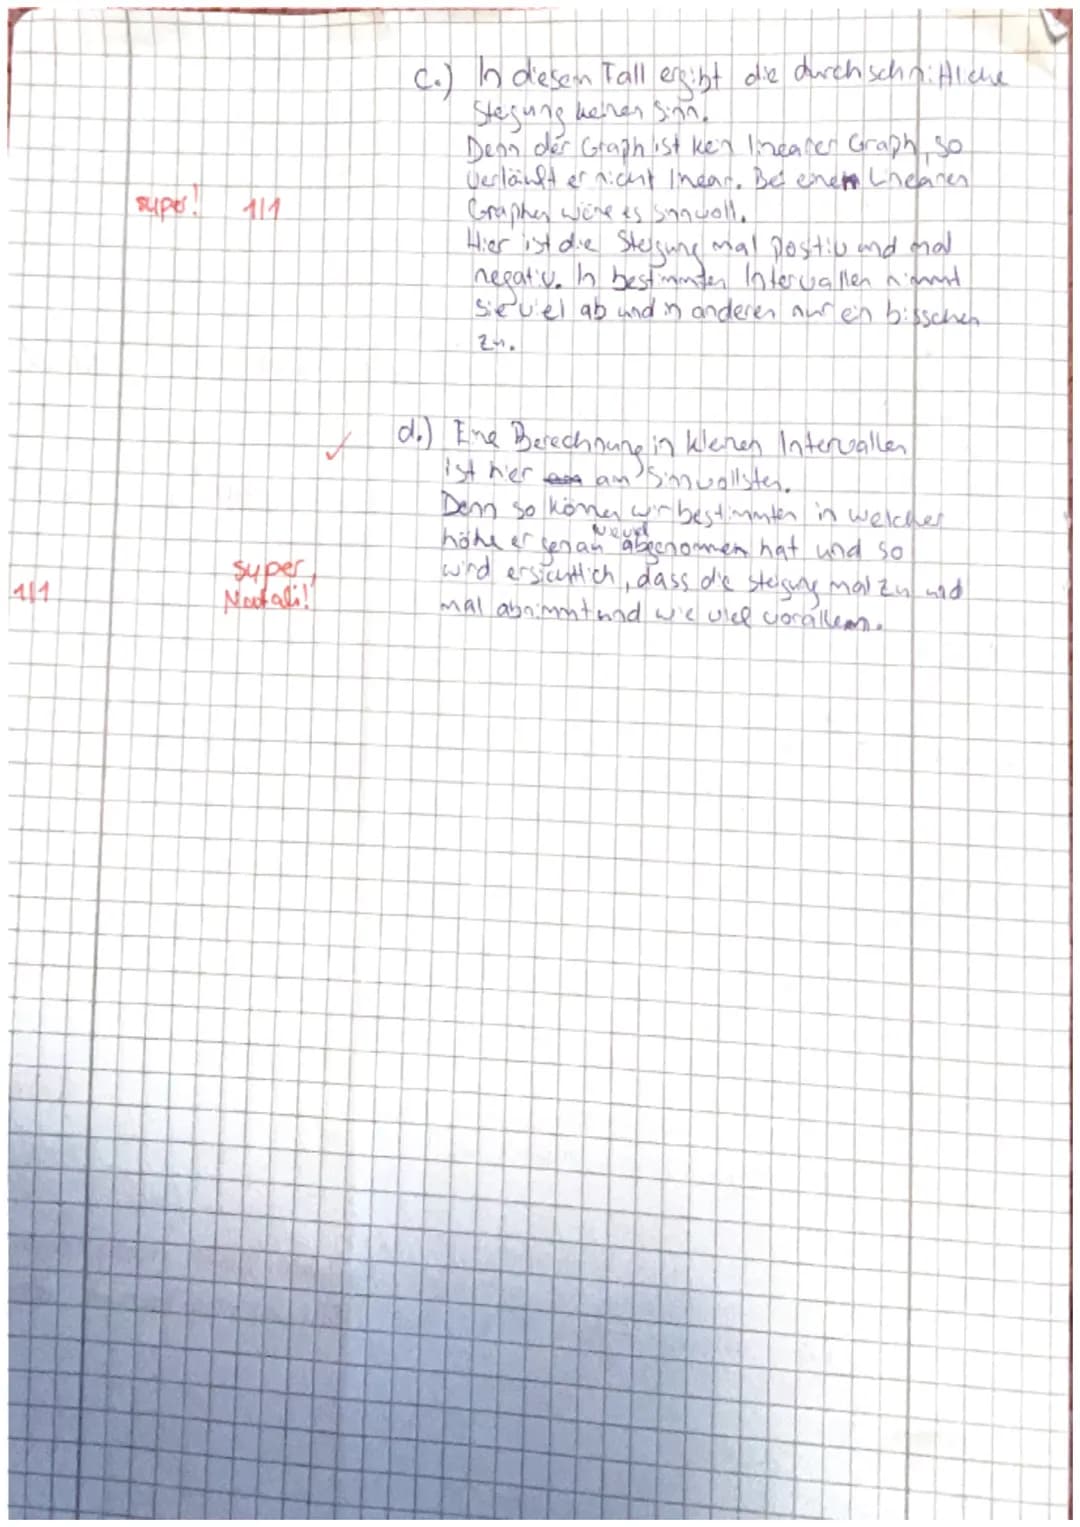 c.) In diesem Fall ergibt die durchschnittliche
Steigung keinen Sinn.
Denn der Graph ist kein linearer Graph, so
verläuft er nicht linear. Bei einem linearen
Graphen wäre es sinnvoll.
super! 1/1
Hier ist die Steigung mal positiv und mal
negativ. In bestimmten Intervallen nimmt
sie viel ab und in anderen nur ein bisschen
zu.
d.) Eine Berechnung in kleinen Intervallen
ist hier am sinnvollsten.
Denn so können wir bestimmten in welcher
höhe er genau abgenommen hat und so
wird ersichtlich, dass die steigung mal zu und
mal abnimmt und wie viel vorallem.
super,
Natali!
1/1